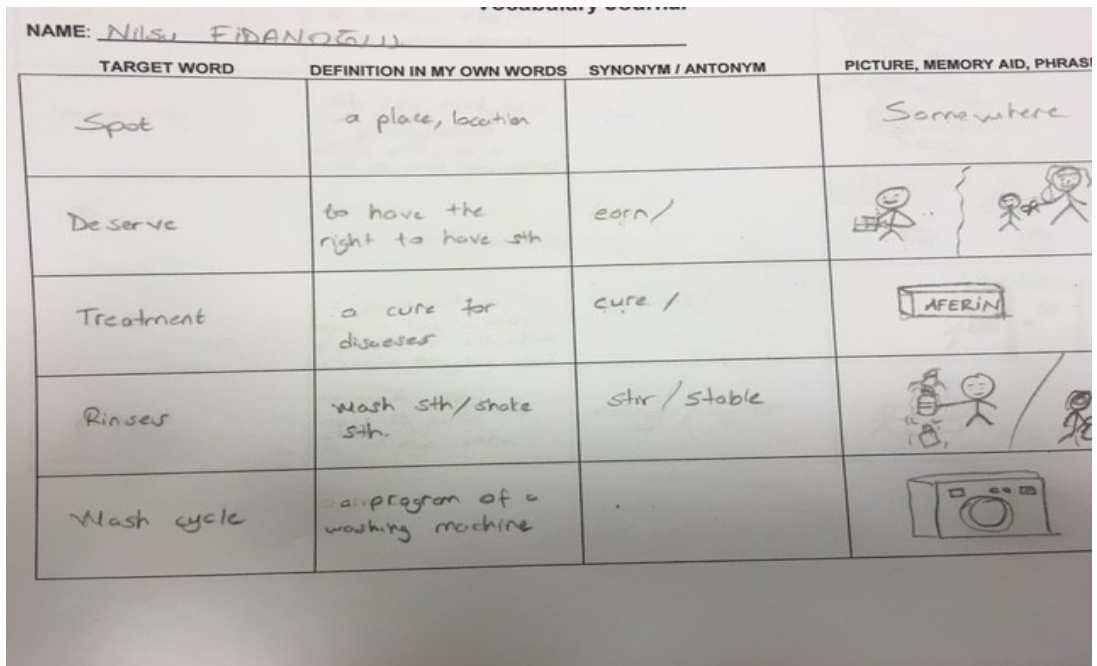 Vocabulary Journal
NAME: Nilsu FİDANOĞLU
TARGET WORD DEFINITION IN MY OWN WORDS SYNONYM / ANTONYM PICTURE, MEMORY AID, PHRAS
Spot
a place, location
Somewhere
Deserve
to have the
right to have sth
earn/
Treatment
a cure for
diseases
cure /
AFERİN
Rinses
wash sth/shake
sth.
stir / stable
Wash cycle
a program of a
washing machine